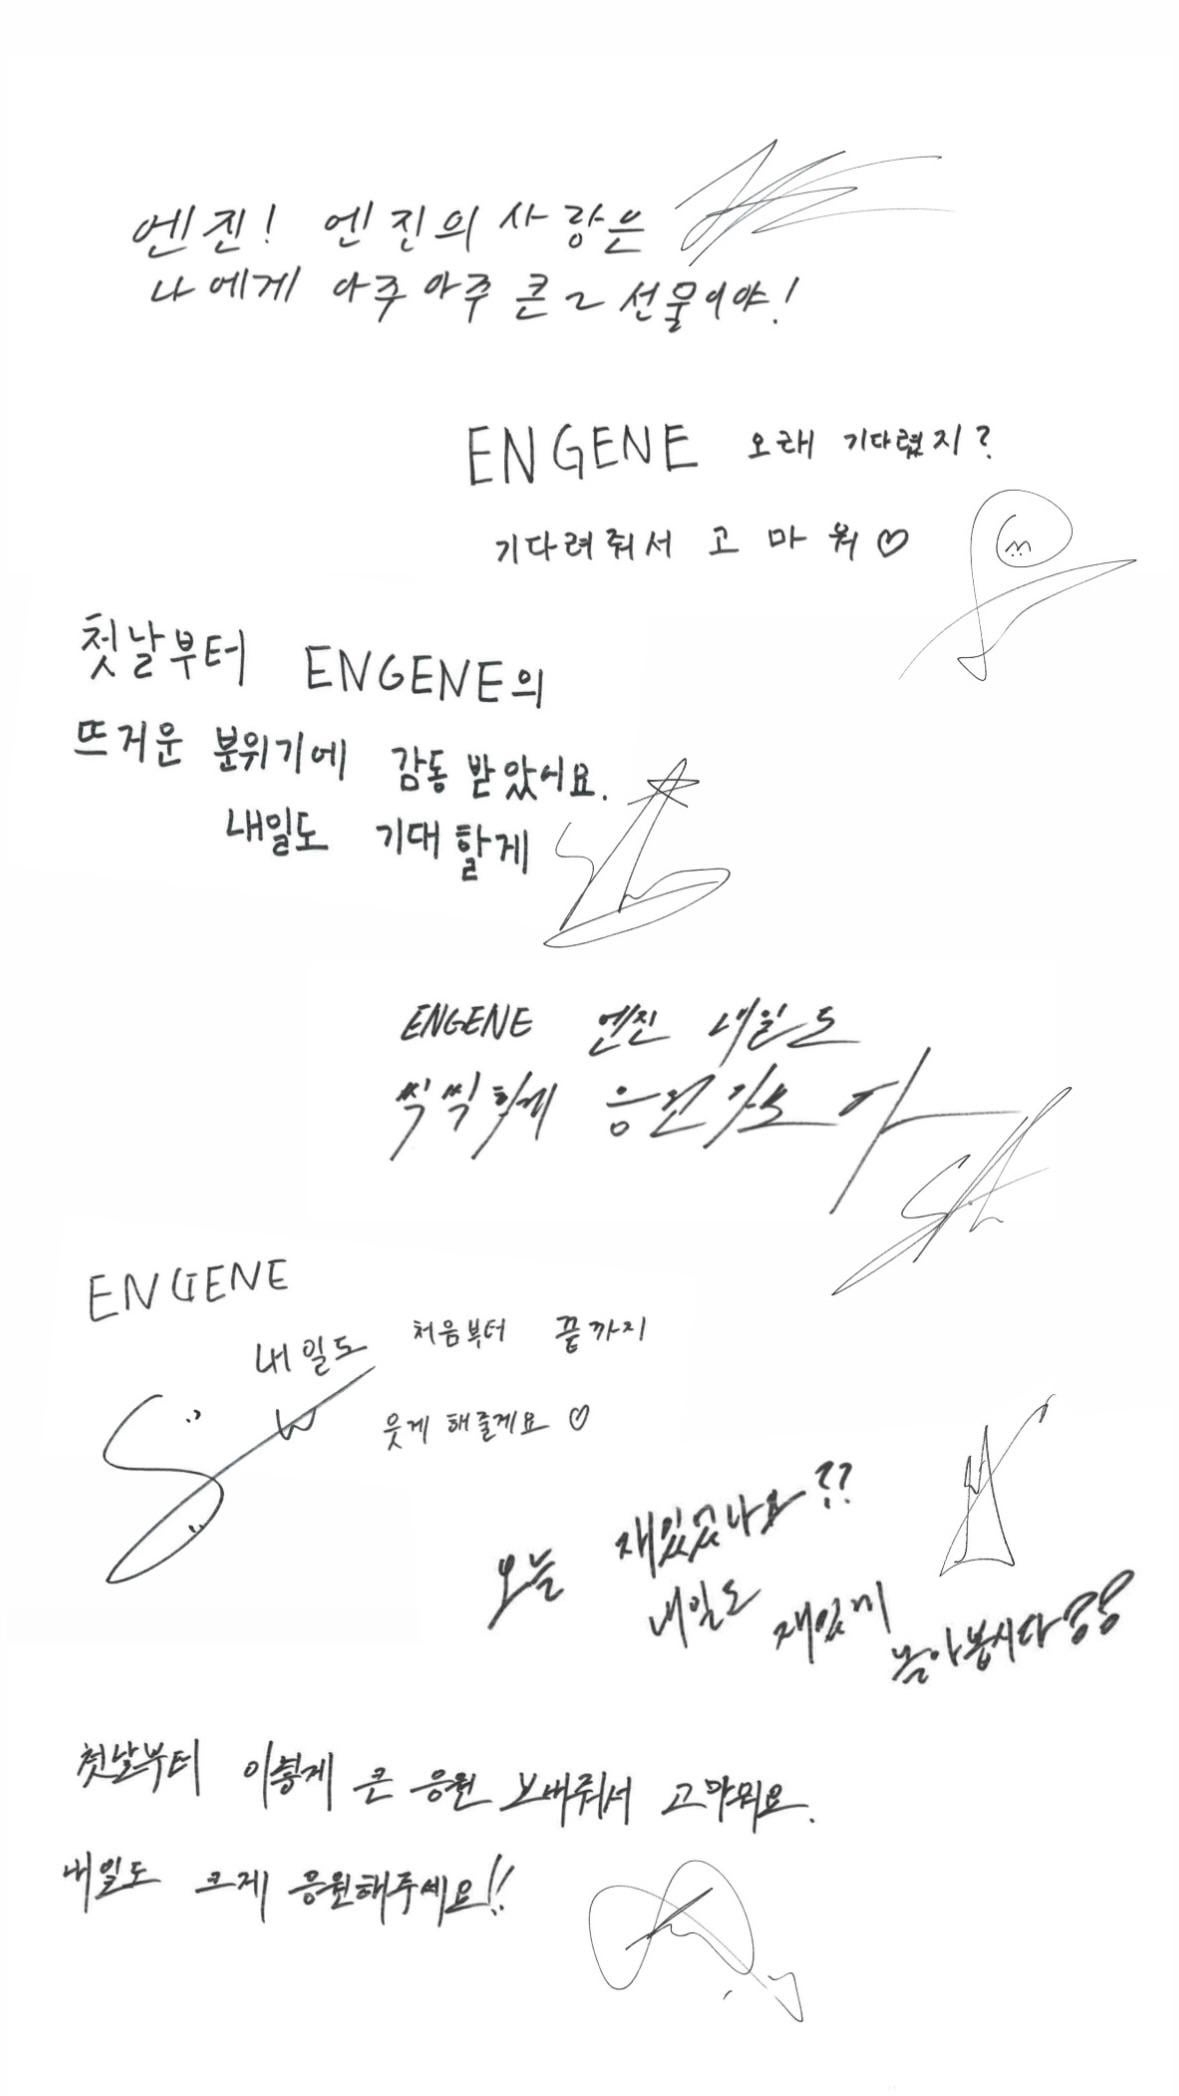 엔진! 엔진의 사랑은
나에게 아주아주 큰 선물이야!
ENGENE 오래 기다렸지?
기다려줘서 고마워♡
첫날부터 ENGENE의
뜨거운 분위기에 감동 받았어요.
내일도 기대할게
ENGENE 엔진 내일도
씩씩하게 응원
ENGENE
내일도 처음부터 끝까지
웃게 해줄게요 ♡
오늘 재있었나요??
내일도 재있게 놀아봅시다
첫날부터 이렇게 큰 응원 보내줘서 고마워요.
내일도 크게 응원해주세요!!